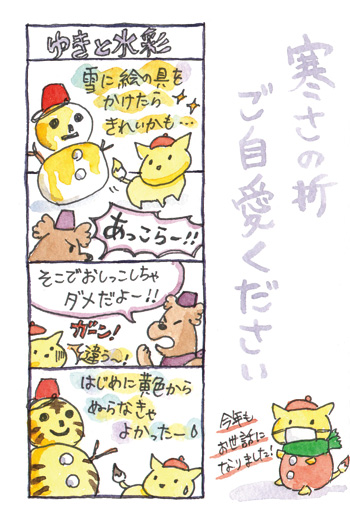 ゆきと水彩
雪に絵の具を
かけたら
きれいかも…
あっこらー!!
そこでおしっこしちゃ
ダメだよー!!
ガーン!
違う〜!
はじめに黄色から
ぬらなきゃ
よかったー
寒さの折
ご自愛ください
今年も
お世話に
なりました!